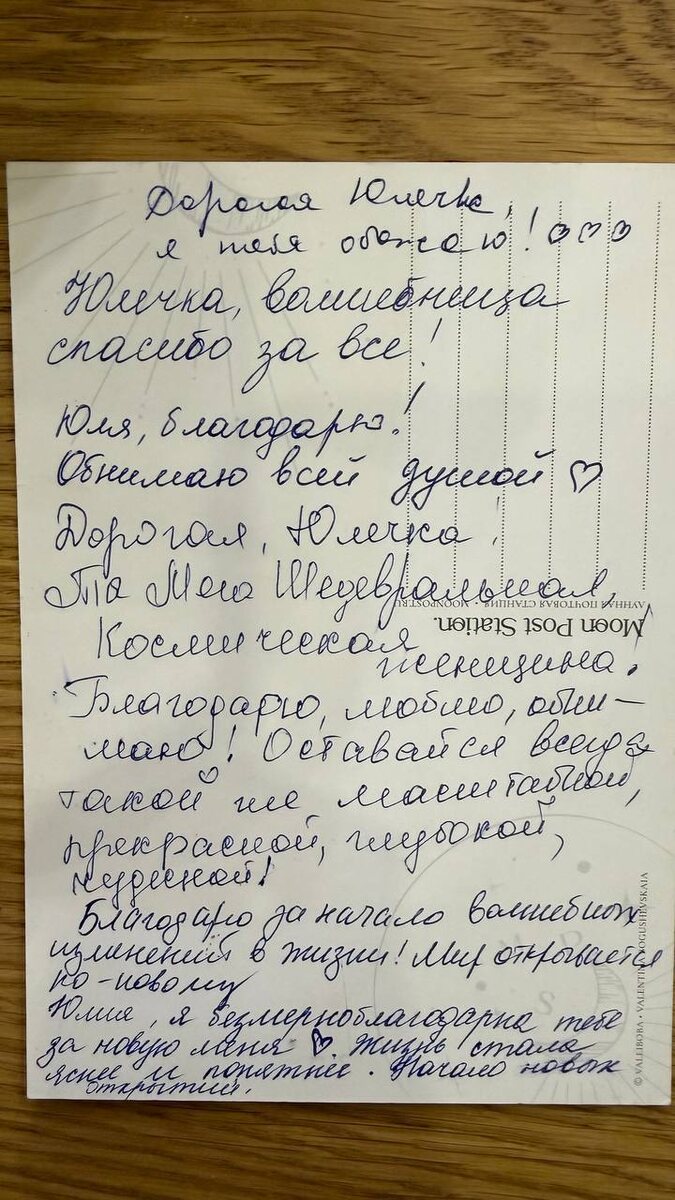 Дорогая Юлечка,
я тебя обожаю! ♡♡♡
Юлечка, волшебница
спасибо за все!
Юля, благодарю!
Обнимаю всей душой ♡
Дорогая, Юлечка!
Ты Мега Шедевральная,
ЛУННАЯ ПОЧТОВАЯ СТАНЦИЯ • MOONPOST.RU
Moon Post Station.
Космическая
женщина.
Благодарю, люблю, обни-
маю! Оставайся всегда
такой же масштабной,
прекрасной, глубокой,
чудесной!
Благодарю за начало волшебных
изменений в жизни! Мир открывается
по-новому
Юлия, я безмерно благодарна тебе
за новую меня ♡. Жизнь стала
яснее и понятнее. Начало новых
открытий.
© VALEIBOBA • VALENTINA BOGUSHEVSKAIA